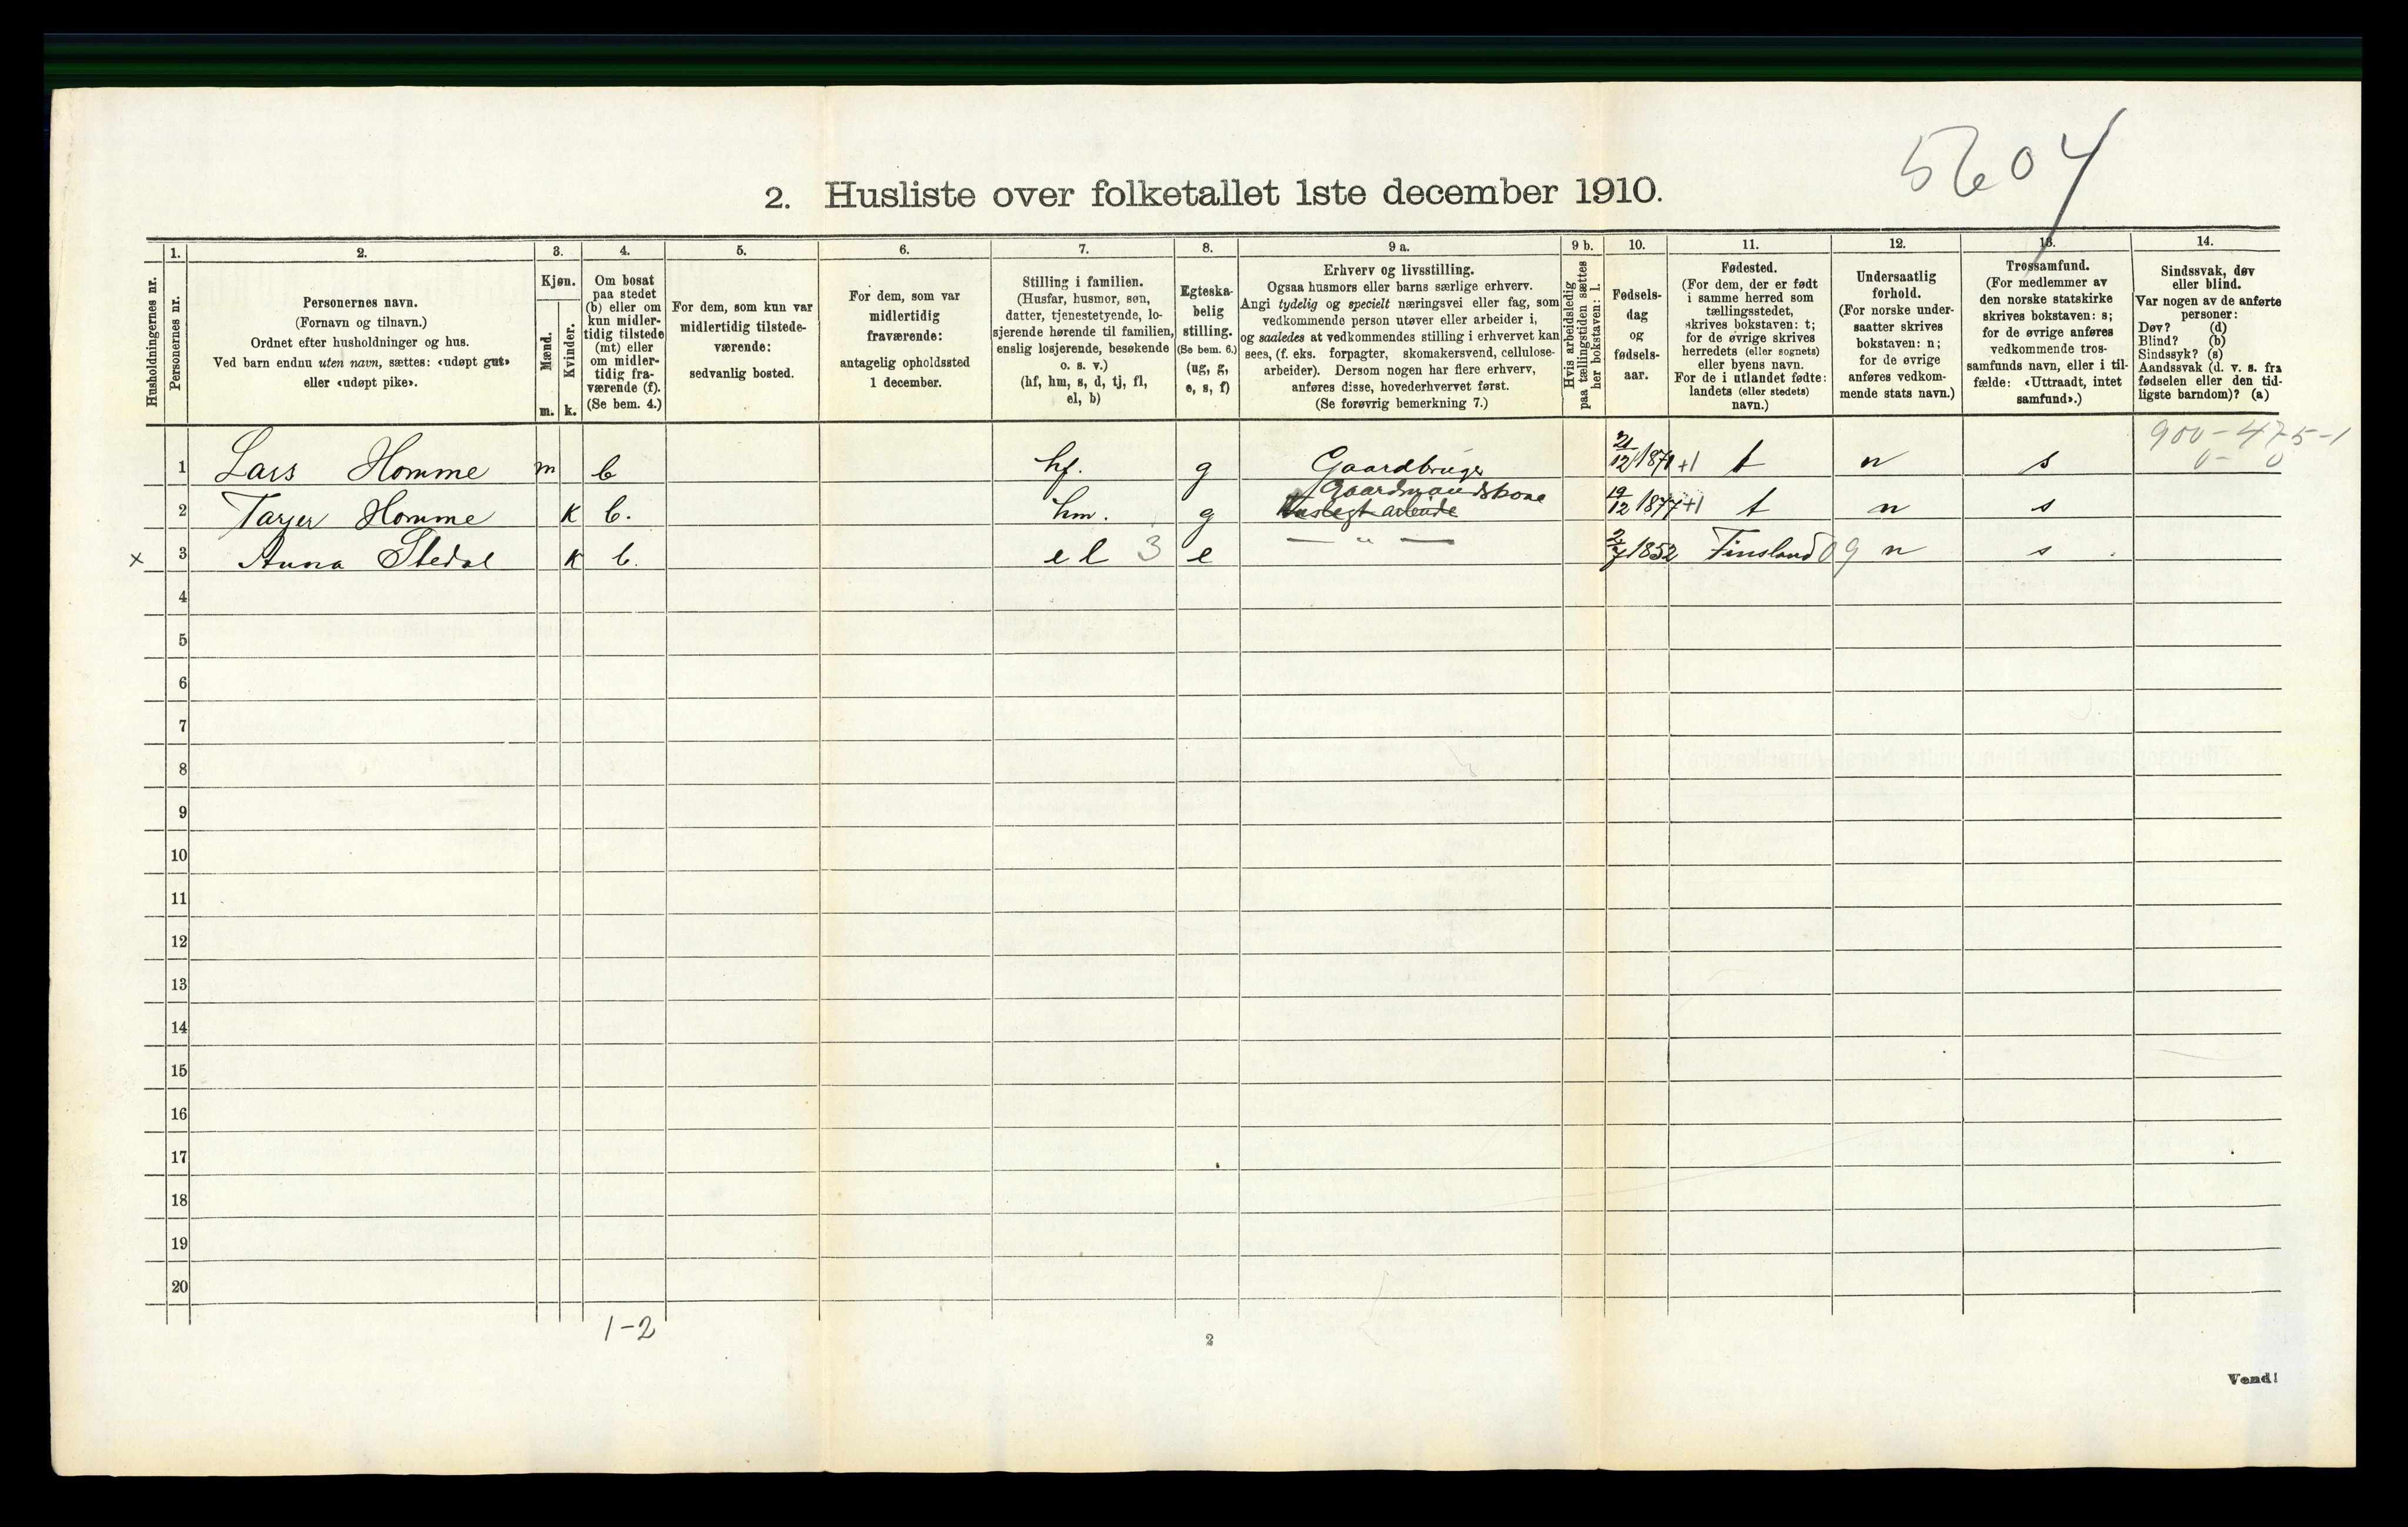 5604
2. Husliste over folketallet 1ste december 1910.
Husholdningernes nr.
1.
Personernes nr.
2.
Personernes navn.
(Fornavn og tilnavn.)
Ordnet efter husholdninger og hus.
Ved barn endnu uten navn, sættes: «udøpt gut»
eller «udøpt pike».
3.
Kjøn.
Mænd.
Kvinder.
m. k.
4.
Om bosat
paa stedet
(b) eller om
kun midler-
tidig tilstede
(mt) eller
om midler-
tidig fra-
værende (f).
(Se bem. 4.)
5.
For dem, som kun var
midlertidig tilstede-
værende:
sedvanlig bosted.
6.
For dem, som var
midlertidig
fraværende:
antagelig opholdssted
1 december.
7.
Stilling i familien.
(Husfar, husmor, søn,
datter, tjenestetyende, lo-
sjerende hørende til familien,
enslig losjerende, besøkende
o. s. v.)
(hf, hm, s, d, tj, fl,
el, b)
8.
Egteska-
belig
stilling.
(Se bem. 6.)
(ug, g,
e, s, f)
9 a.
Erhverv og livsstilling.
Ogsaa husmors eller barns særlige erhverv.
Angi tydelig og specielt næringsvei eller fag, som
vedkommende person utøver eller arbeider i,
og saaledes at vedkommendes stilling i erhvervet kan
sees, (f. eks. forpagter, skomakersvend, cellulose-
arbeider). Dersom nogen har flere erhverv,
anføres disse, hovederhvervet først.
(Se forøvrig bemerkning 7.)
9 b.
Hvis arbeidsledig
paa tællingstiden sættes
her bokstaven: l.
10.
Fødsels-
dag
og
fødsels-
aar.
11.
Fødested.
(For dem, der er født
i samme herred som
tællingsstedet,
skrives bokstaven: t;
for de øvrige skrives
herredets (eller sognets)
eller byens navn.
For de i utlandet fødte:
landets (eller stedets)
navn.)
12.
Undersaatlig
forhold.
(For norske under-
saatter skrives
bokstaven: n;
for de øvrige
anføres vedkom-
mende stats navn.)
13.
Trossamfund.
(For medlemmer av
den norske statskirke
skrives bokstaven: s;
for de øvrige anføres
vedkommende tros-
samfunds navn, eller i til-
fælde: «Uttraadt, intet
samfund».)
14.
Sindssvak, døv
eller blind.
Var nogen av de anførte
personer:
Døv? (d)
Blind? (b)
Sindssyk? (s)
Aandssvak (d. v. s. fra
fødselen eller den tid-
ligste barndom)? (a)
900-475-1
0-0
1 Lars Homme m b hf. g Gaardbruger 21/12 1871 +1 t n s
2 Tarjer Homme k b. hm. g Gaardmandskone 19/12 1877 +1 t n s
x 3 Anna Stedal k b. el 3 e — " — 2/7 1852 Finsland 09 n s
4
5
6
7
8
9
10
11
12
13
14
15
16
17
18
19
20
1-2
2
Vend!